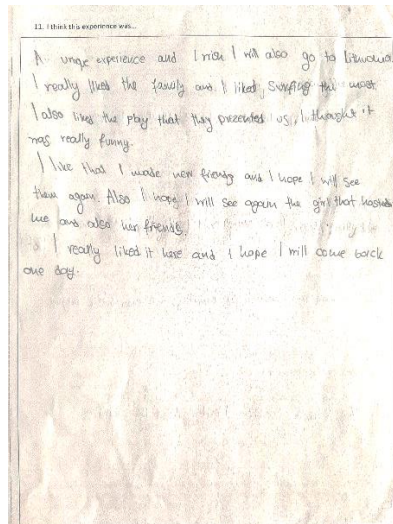 11. I think this experience was...
A unqe experience and I wish I will also go to Lituwania
I really liked the family and I liked, Surfing the most
I also liked the play that they prezented us, I thought it
was really funny.
I like that I made new friends and I hope I will see
them again. Also I hope I will see again the girl that hosted
me and also her friends.
I really liked it here and I hope I will come back
one day.